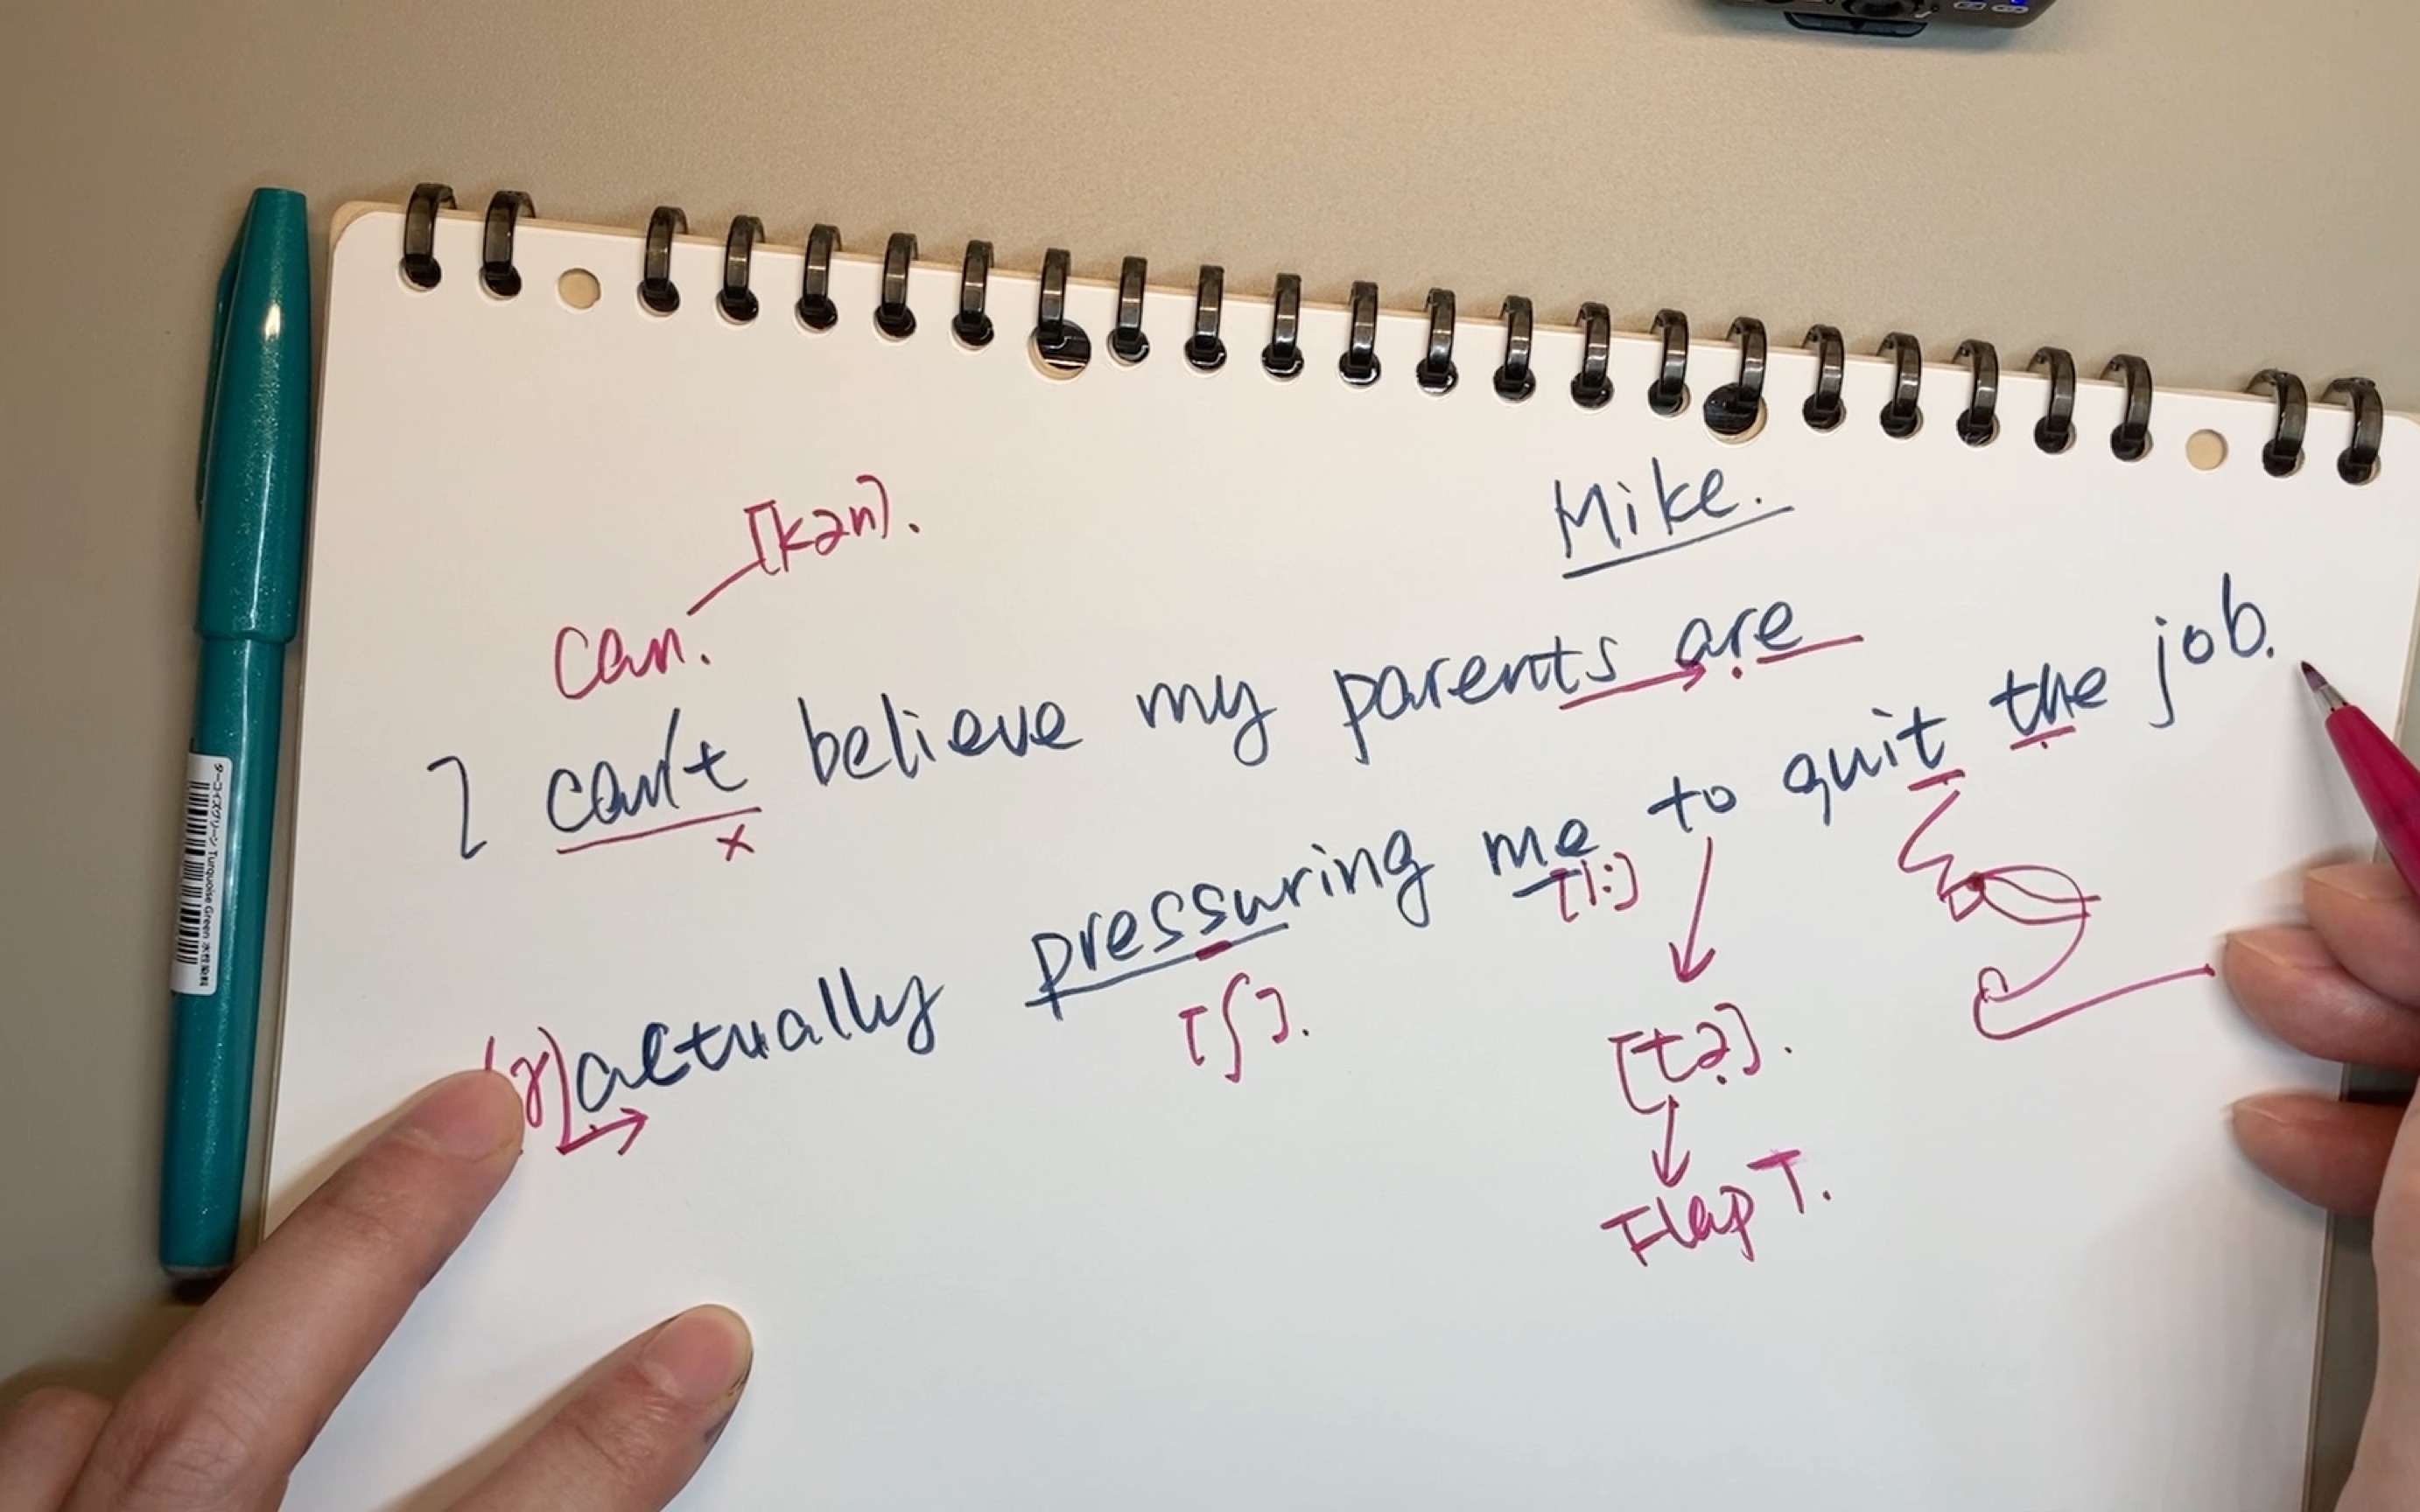 Mike.
[kən].
can.
I can't believe my parents are
[r] actually pressuring me to quit the job.
[ʃ].
[i:]
[tə].
Flap T.
ターコイズグリーン Turquoise Green 水性染料